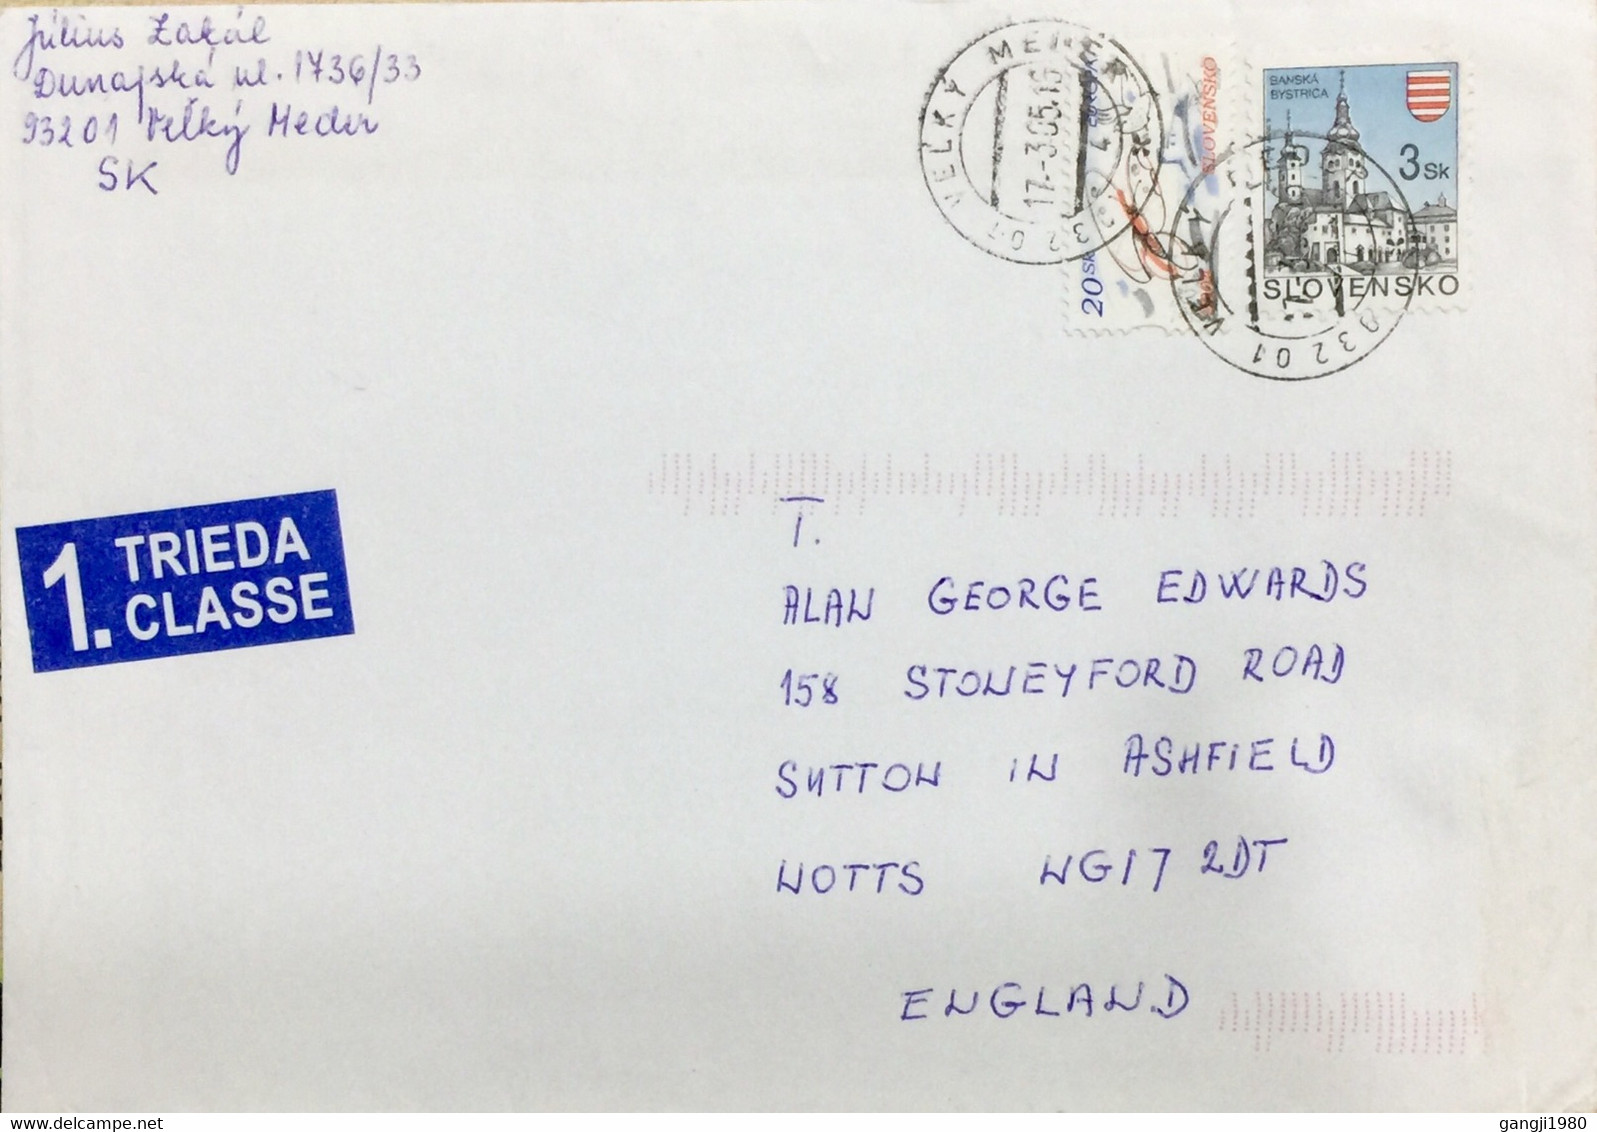 Július Zakál
Dunajská ul. 1736/33
93201 Veľký Meder
SK
VEĽKÝ MEDER
17.-3.05.-16
4
932 01
20 SK
SLOVENSKO
BANSKÁ
BYSTRICA
3 Sk
SLOVENSKO
932 01
1. TRIEDA
CLASSE
T.
ALAN GEORGE EDWARDS
158 STONEYFORD ROAD
SUTTON IN ASHFIELD
NOTTS NG17 2DT
ENGLAND
gangji1980